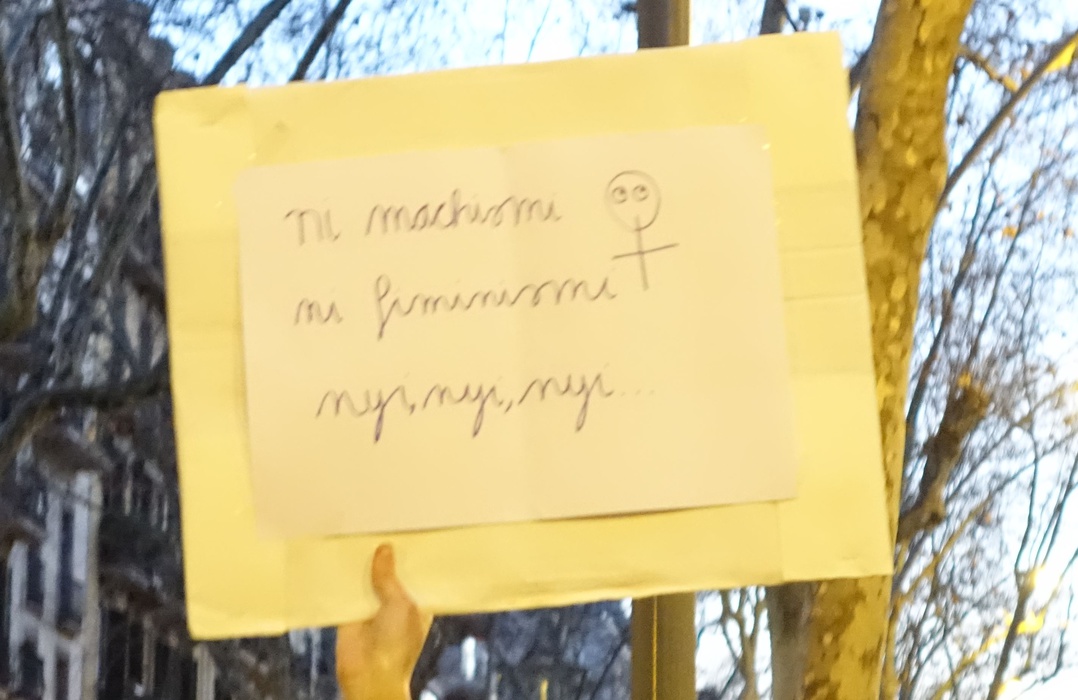 ni machismi
ni fiminismi
nyi, nyi, nyi...